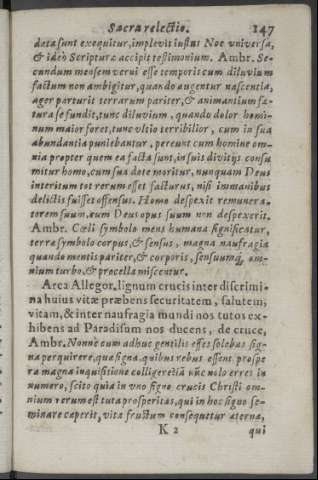 Sacra relectio. 147
data sunt exequitur, implevit iustus Noe universa,
& ideò Scripturæ accipit testimonium. Ambr. Se-
cundum mensem verni esse temporis cum diluvium
factum non ambigitur, quando augentur nascentia,
ager parturit terrarum pariter, & animantium fæ-
tura se fundit, tunc diluvium, quando dolor homi-
num maior foret, tunc ultio terribilior, cum in sua
abundantia puniebantur, pereunt cum homine om-
nia propter quem ea facta sunt, in suis divitijs consu
mitur homo, cum sua dote moritur, nunquam Deus
interitum tot rerum esset facturus, nisi immanibus
delictis fuisset offensus. Homo despexit remunera-
torem suum, cum Deus opus suum non despexerit.
Ambr. Cœli symbolo mens humana significatur,
terræ symbolo corpus, & sensus, magna naufragia
quando mentis pariter, & corporis, sensuumq́; om-
nium turbo, & procella miscentur.
Arca Allegor. lignum crucis inter discrimi-
na huius vitæ præbens securitatem, salutem,
vitam, & inter naufragia mundi nos tutos ex-
hibens ad Paradisum nos ducens, de cruce,
Ambr. Nonne cum adhuc gentilis esses solebas sig-
na perquirere, quæ signa quibus rebus essent prospe
ra magna inquisitione colligere etiã nũc nolo erres in
numero, scito quia in vno signo crucis Christi om-
nium rerum est tuta prosperitas, qui in hoc signo se-
minare cæperit, vitæ fructum consequitur æternæ,
K 2 qui